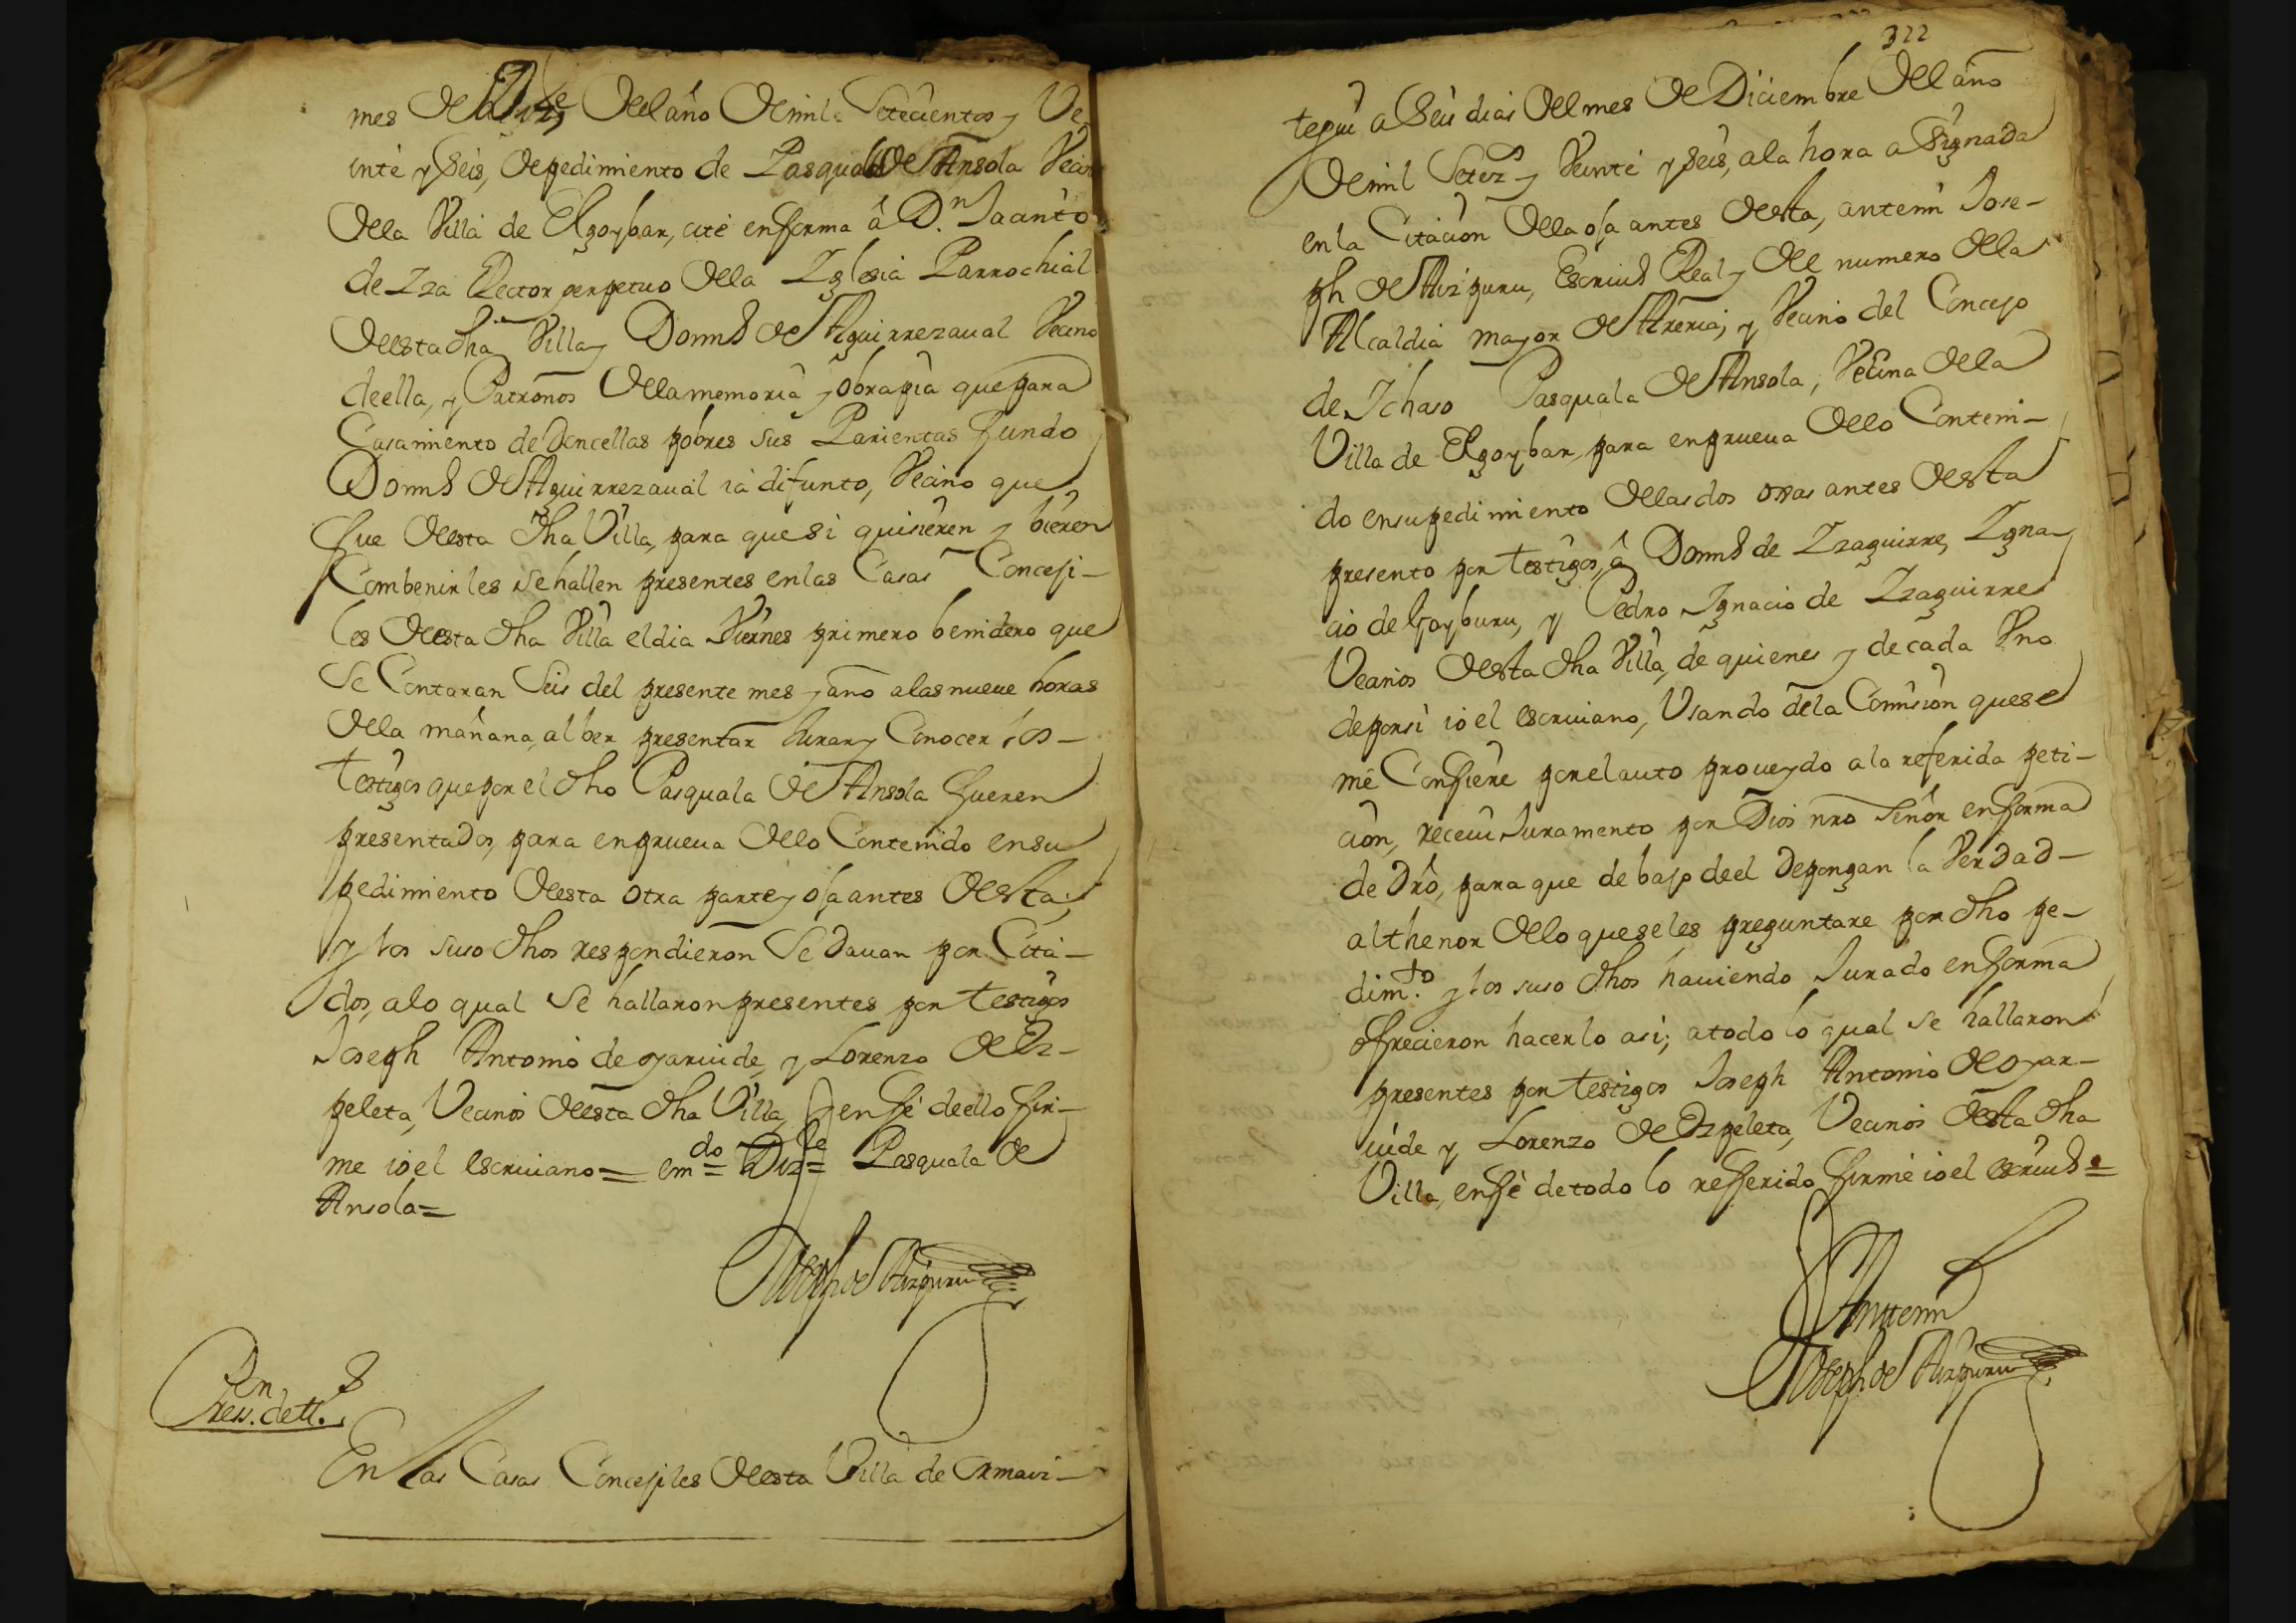 mes de Diz.e del año de mil Setecientos y Ve-
inte y Seis, de pedimiento de Pasquala de Ansola Vecina
de la Villa de Elgoybar, cité en forma â D.n Jacinto
de Iza Rector perpetuo de la Iglesia Parrochial
de esta dha Villa y Dom.o de Aguirrezaual Vecino
de ella, y Patronos de la memoria y obra pia que para
Casamiento de Doncellas pobres sus Parientas fundo
Dom.o de Aguirrezaual ia difunto, Vecino que
fue de esta dha Villa, para que si quisieren y bieren
Combenirles se hallen presentes en las Casas Conceji-
les de esta dha Villa el dia Viernes primero benidero que
Se Contaran Seis del presente mes y año a las nueue horas
de la mañana, al ber presentar Jurar y Conocer los-
testigos que por el dho Pasquala de Ansola fueren
presentados, para en prueua de lo Contenido en su
pedimiento de esta otra parte y oja antes de esta;
y los suso dhos respondieron Se dauan por Cita-
dos, a lo qual se hallaron presentes por testigos
Joseph Antonio de oyaruide, y Lorenzo de Ez-
peleta, Vecinos de esta dha Villa, y en fé de ello fir-
me io el escriuano= em.do= Diz.e= Pasquala de
Ansola=
Joseph de Aizpuru
Pres.on de tt.os
En las Casas Concejiles de esta Villa de Ormaiz-
322
tegui a Seis dias del mes de Diciembre del año
de mil Setez.s y Veinte y Seis, a la hora asignada
en la Citacion de la oja antes de esta, ante mi Jose-
ph de Aizpuru, Escriu.o Real y de numero de la
Alcaldia mayor de Areria, y Vecino del Concejo
de Ichaso Pasquala de Ansola, Vecina de la
Villa de Elgoybar, para en prueua de lo Conteni-
do en su pedimiento de las dos ojas antes de esta
presento por testigos, â Dom.o de Izaguirre, Igna-
cio de Goyburu, y Pedro Ignacio de Izaguirre
Vecinos de esta dha Villa, de quienes y de cada Vno
de por si io el escriuano, Vsando de la Comision que se
me Confiere por el auto proueydo a la referida peti-
cion, receui Juramento por Dios nro Señor en forma
de dro, para que debajo de el depongan la Verdad-
al thenor de lo que se les preguntare por dho pe-
dim.to y los suso dhos hauiendo Jurado en forma
ofrecieron hacerlo asi; a todo lo qual se hallaron
presentes por testigos Joseph Antonio de oyar-
uide y Lorenzo de Ezpeleta, Vecinos de esta dha
Villa, en fé de todo lo referido firmé io el escriu.o=
Ante mi
Joseph de Aizpuru